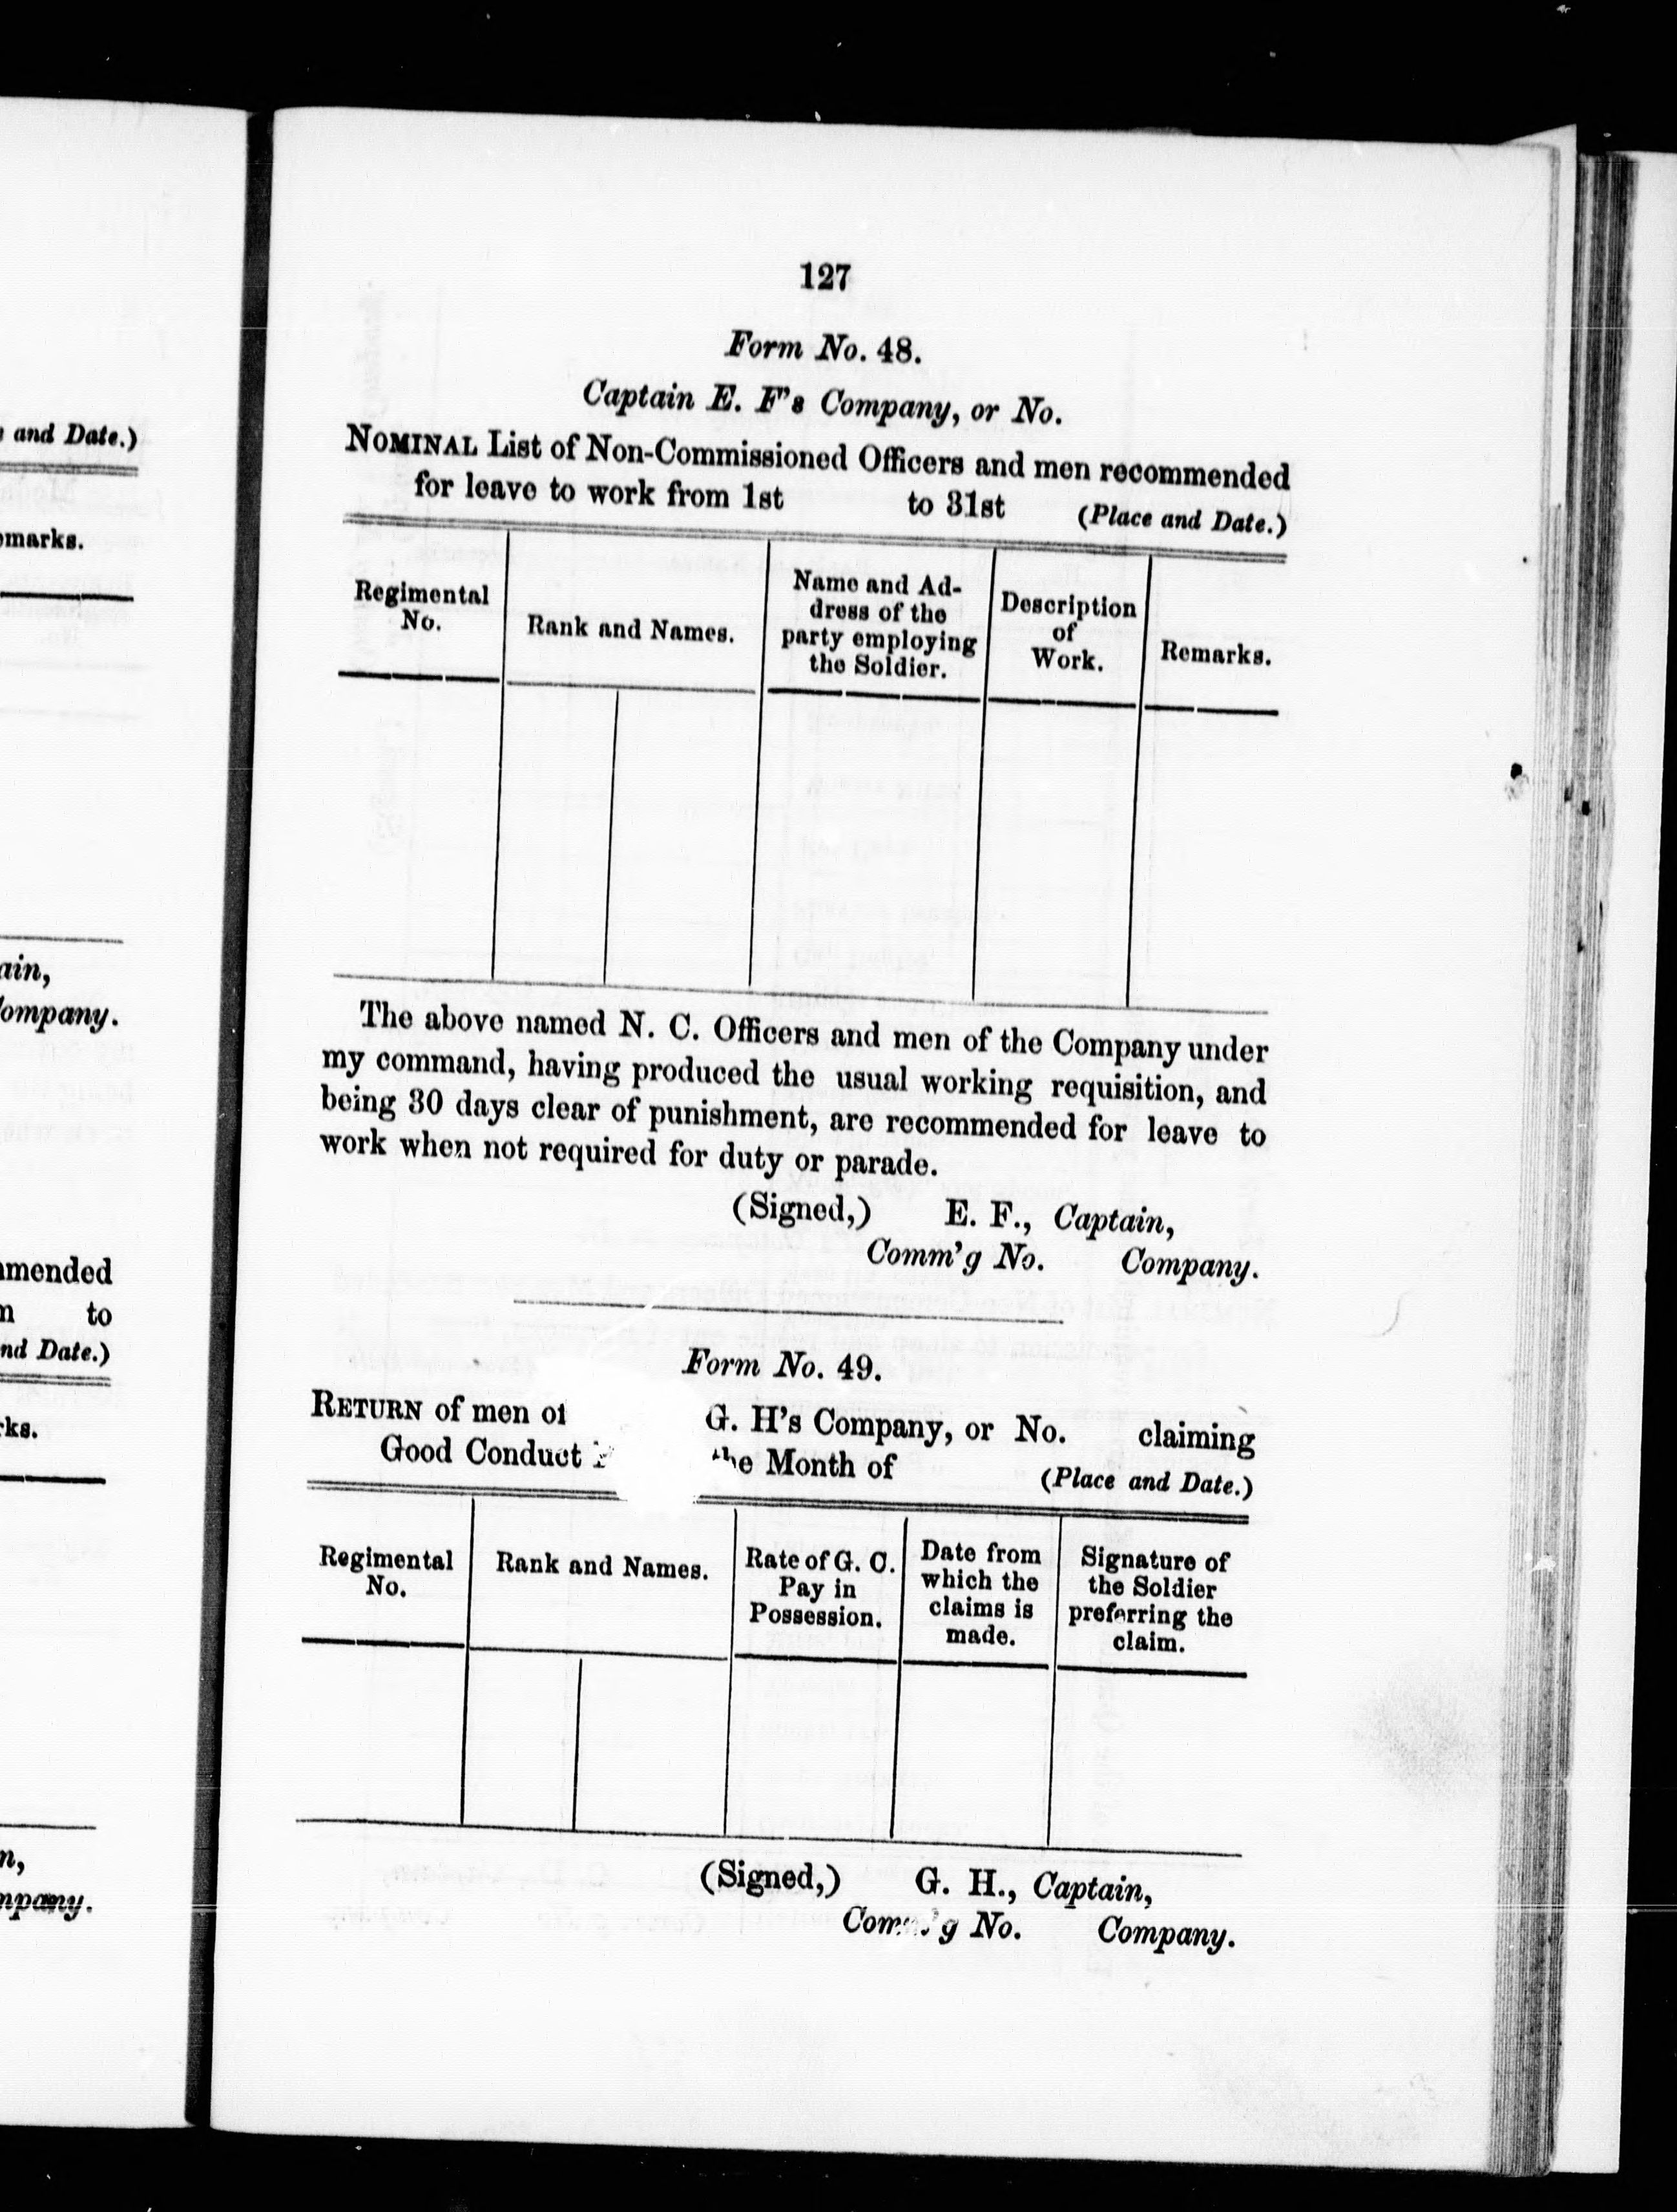 and Date.)
marks.
ain,
ompany.
mended
to
nd Date.)
ks.
n,
mpany.
127
Form No. 48.
Captain E. F's Company, or No.
NOMINAL List of Non-Commissioned Officers and men recommended
for leave to work from 1st to 31st (Place and Date.)
Regimental
No.
Rank and Names.
Name and Ad-
dress of the
party employing
the Soldier.
Description
of
Work.
Remarks.
The above named N. C. Officers and men of the Company under
my command, having produced the usual working requisition, and
being 30 days clear of punishment, are recommended for leave to
work when not required for duty or parade.
(Signed,) E. F., Captain,
Comm'g No. Company.
Form No. 49.
RETURN of men of G. H's Company, or No. claiming
Good Conduct the Month of (Place and Date.)
Regimental
No.
Rank and Names.
Rate of G. C.
Pay in
Possession.
Date from
which the
claims is
made.
Signature of
the Soldier
preferring the
claim.
(Signed,) G. H., Captain,
Comm'g No. Company.